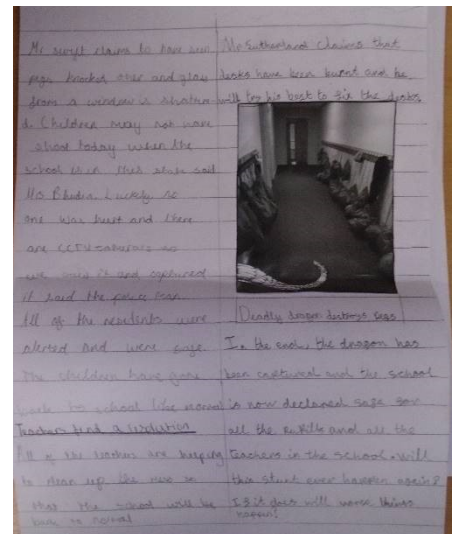 Mr swift claims to have seen
pegs knocked over and glass
from a window is shattere
d. Children may not have
shool today when the
school is in this state said
Ms Bhudia. Luckily no
one was hurt and there
are CCTV cameras so
we saw it and captured
it said the police man.
All of the residents were
alerted and were safe.
The children have gone
back to school like normal
Teachers find a resolution
All of the teacher are helping
to clean up the mess so
that the school will be
back to normal
Mr Sutherland claims that
desks have been burnt and he
will try his best to fix the desks.
Deadly dragon destroys pegs
In the end, the dragon has
been captured and the school
is now declared safe for
all the pupils and all the
teachers in the school. Will
this stunt ever happen again?
If it does will worse things
happen!